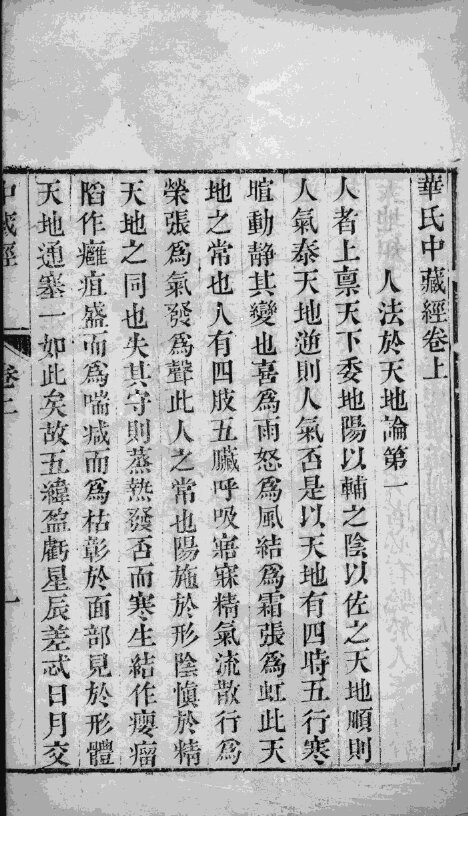 華氏中藏經卷上
人法於天地論第一
人者上稟天下委地陽以輔之陰以佐之天地順則
人氣泰天地逆則人氣否是以天地有四時五行寒
暄動靜其變也喜為雨怒為風結為霜張為虹此天
地之常也人有四肢五臟呼吸寤寐精氣流散行為
榮張為氣發為聲此人之常也陽施於形陰慎於精
天地之同也失其守則蒸熱發否而寒生結作癭瘤
陷作癰疽盛而為喘減而為枯彰於面部見於形體
天地通塞一如此矣故五緯盈虧星辰差忒日月交
中藏經
卷上
一